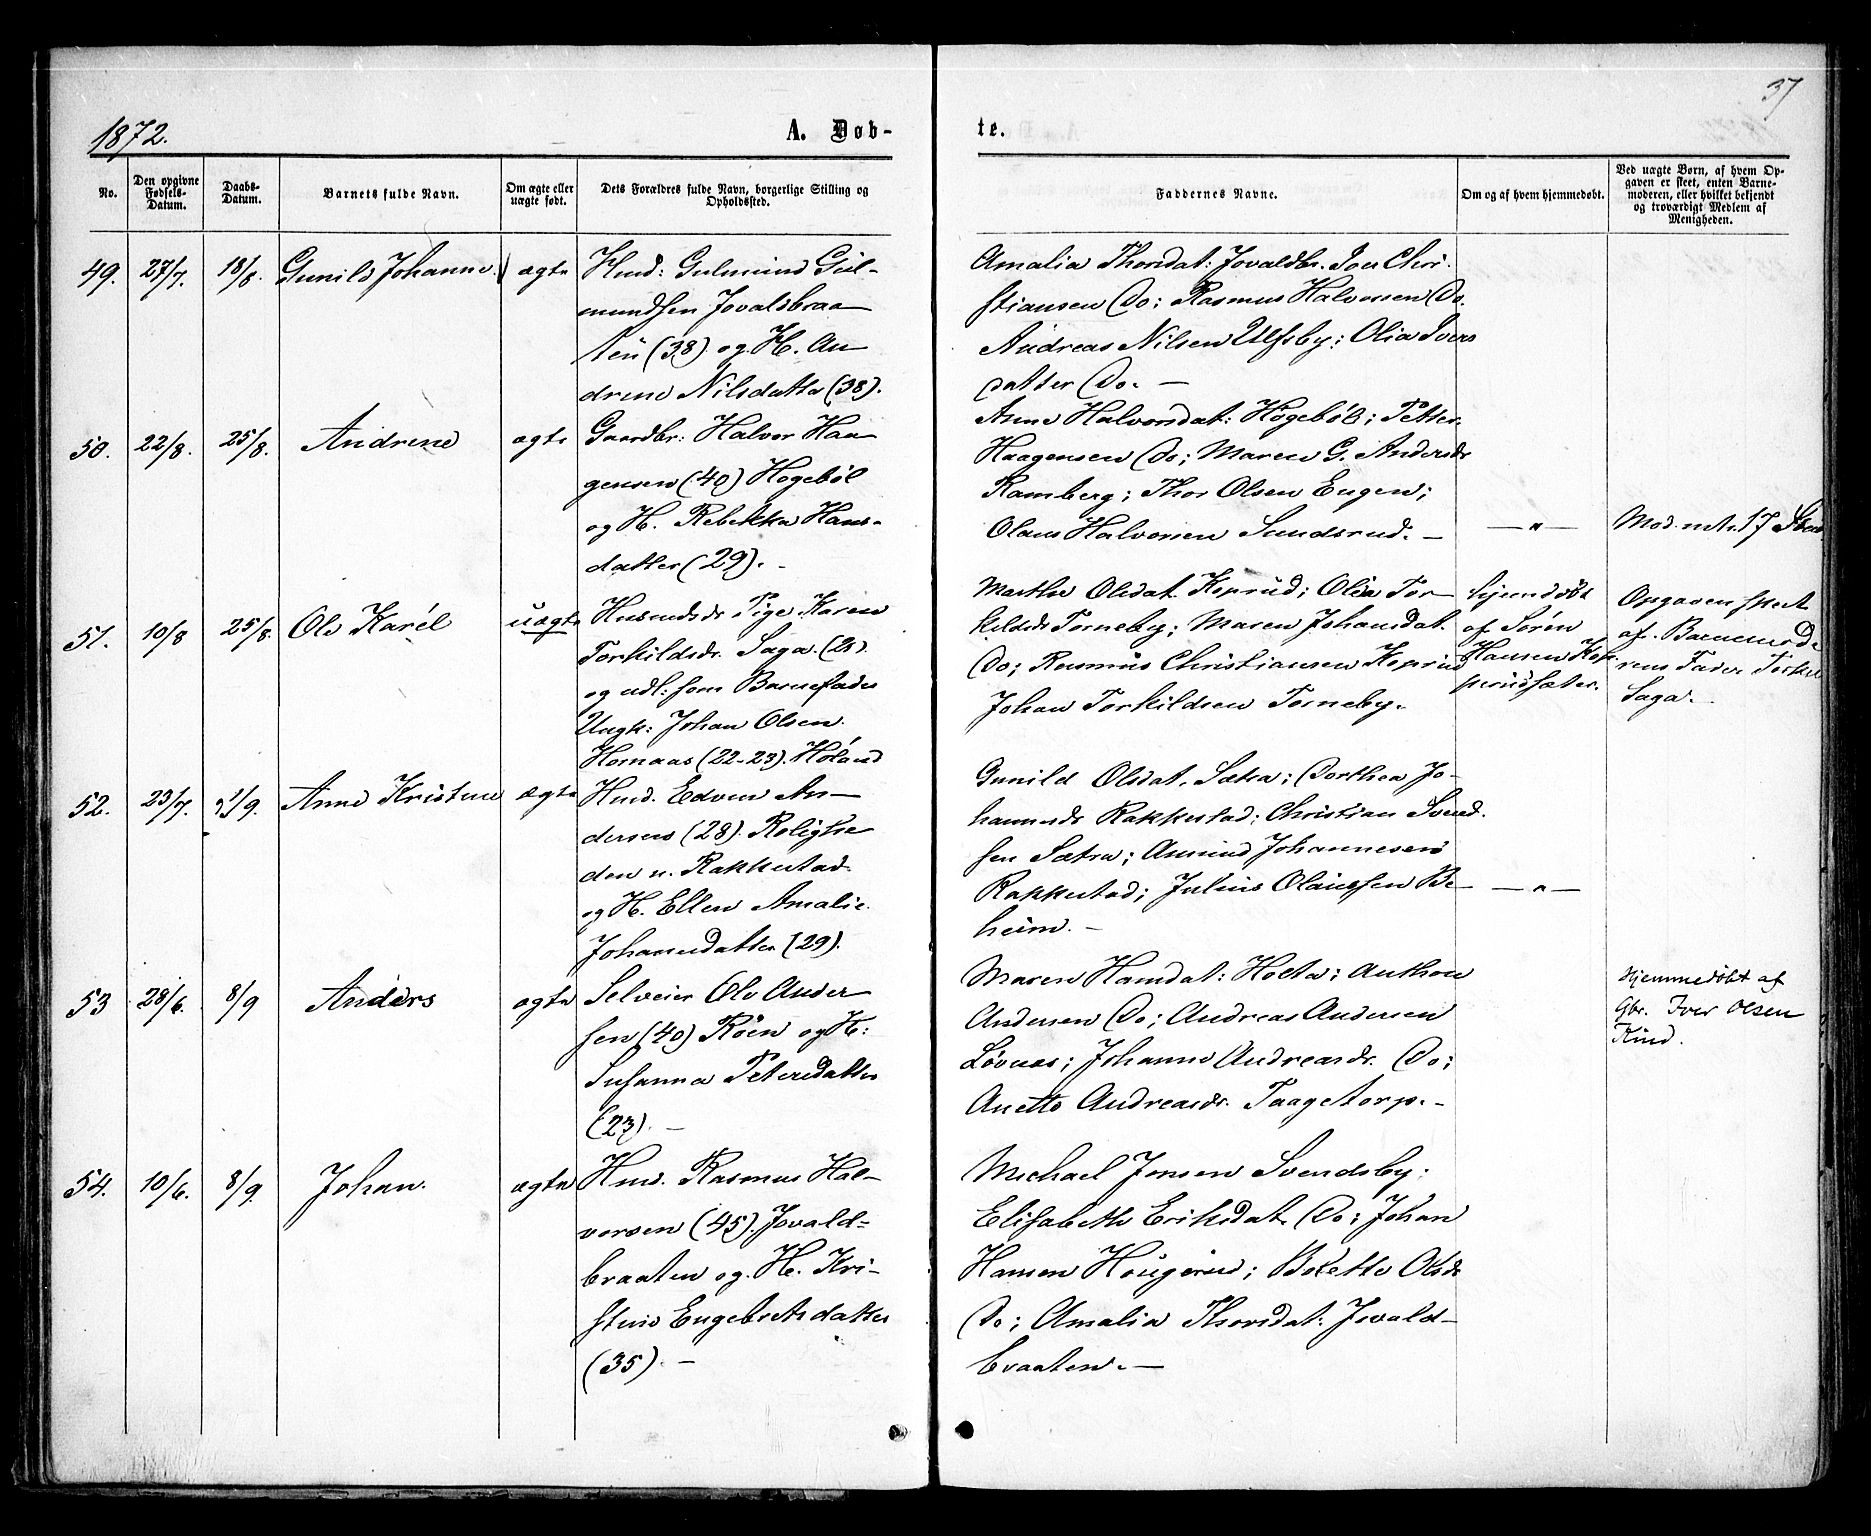 37
1872.
A. Døb-
te.
No.
Den opgivne Fødsels-Datum.
Daabs-Datum.
Barnets fulde Navn.
Om ægte eller uægte født.
Dets Forældres fulde Navn, borgerlige Stilling og Opholdssted.
Faddernes Navne.
Om og af hvem hjemmedøbt.
Ved uægte Børn, af hvem Opgaven er skeet, enten Barnemoderen, eller hvilket bekjendt og troværdigt Medlem af Menigheden.
49. 27/7. 18/8. Gunild Johanne ægte
Husd: Gulmund Gul-
mundsen Jovaldsbraa
ten (38) og H. An
drine Nilsdatter (38).
Amalia Thorsdat: Jovaldbr. Iver Chri-
stiansen Do; Rasmus Halvorsen Do.
Andreas Nilsen Ulfsby; Olia Ivers
datter Do. —
50. 22/8. 25/8. Andrine ægte
Gaardbr: Halvor Haa
gensen (40) Høgebøl
og H. Rebekka Hans-
datter (29). -
Anne Halvorsdat: Høgebøl; Petter
Haagensen Do; Maren G. Andersdr
Ramberg; Thor Olsen Engen;
Olaus Halvorsen Sundsrud. —
— " —
51. 10/8 25/8. Ole Karél uægte
Husmdsdr Pige Karen
Torkildsdr. Saga. (21).
og udl: som Barnefader
Ungk: Johan Olsen
Homaas (22-23). Høland
Marthe Olsdat. Koprud; Olia Tor-
kildsdr Torneby; Maren Johansdat.
Do; Rasmus Christiansen Koprud
Johan Torkildsen Torneby.
hjemdøbt
af Søren
Hansen Kop
perudsæter.
Opgaven skeet
af Barnemode
rens Fader Torkel
Saga.
52. 23/7. 1/9. Anne Kristine ægte
Husd. Edven An-
dersen (28). Rolighe
den u. Rakkestad
og H. Ellen Amalie
Johansdatter (29).
Gunild Olsdat. Sætra; Dorthea Jo-
hannesdr Rakkestad; Christian Svend-
sen Sætra; Amund Johannesen
Rakkestad; Julius Olaussen Be-
heim. —
— " —
53 28/6. 8/9 Anders ægte
Selveier Ole Ander
sen (40) Röen og H:
Susanna Petersdatter
(23). —
Maren Hansdat: Holta; Anthon
Andersen Do; Andreas Andersen
Løvnes; Johanne Andreasdr. Do;
Anette Andreasdr. Taagetorp. -
Hjemmedøbt af
Gbr. Iver Olsen
Kind.
54. 10/6. 8/9 Johan. ægte
Husd. Rasmus Hal-
vorsen (45). Jovald-
braaten og H. Kri-
stine Engebretsdatter
(35). —
Michael Jensen Svendsby;
Elisabeth Eriksdat. Do; Johan
Hansen Hougerud; Bolette Olsdr
Do; Amalia Thorsdat: Jovald-
braaten. —